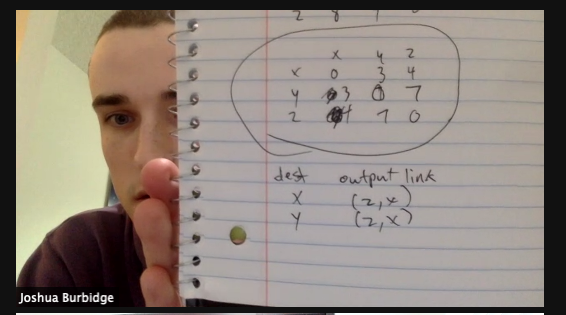 x y 2
x 0 3 4
y 3 0 7
2 4 7 0
dest output link
X (2,x)
Y (2,x)
Joshua Burbidge